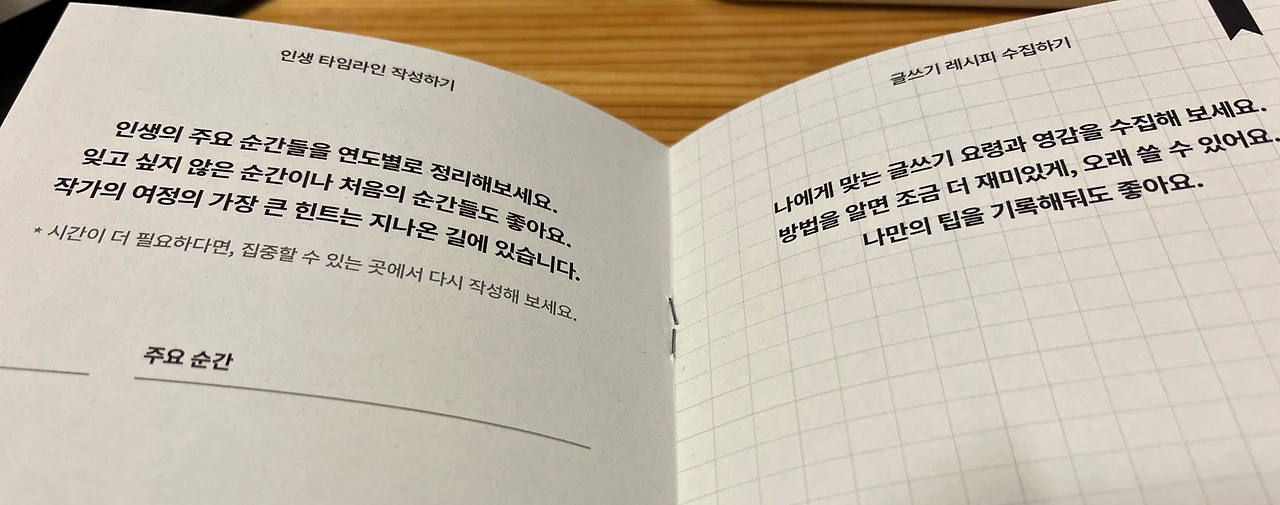 인생 타임라인 작성하기
인생의 주요 순간들을 연도별로 정리해보세요.
잊고 싶지 않은 순간이나 처음의 순간들도 좋아요.
작가의 여정의 가장 큰 힌트는 지나온 길에 있습니다.
* 시간이 더 필요하다면, 집중할 수 있는 곳에서 다시 작성해 보세요.
주요 순간
글쓰기 레시피 수집하기
나에게 맞는 글쓰기 요령과 영감을 수집해 보세요.
방법을 알면 조금 더 재미있게, 오래 쓸 수 있어요.
나만의 팁을 기록해둬도 좋아요.